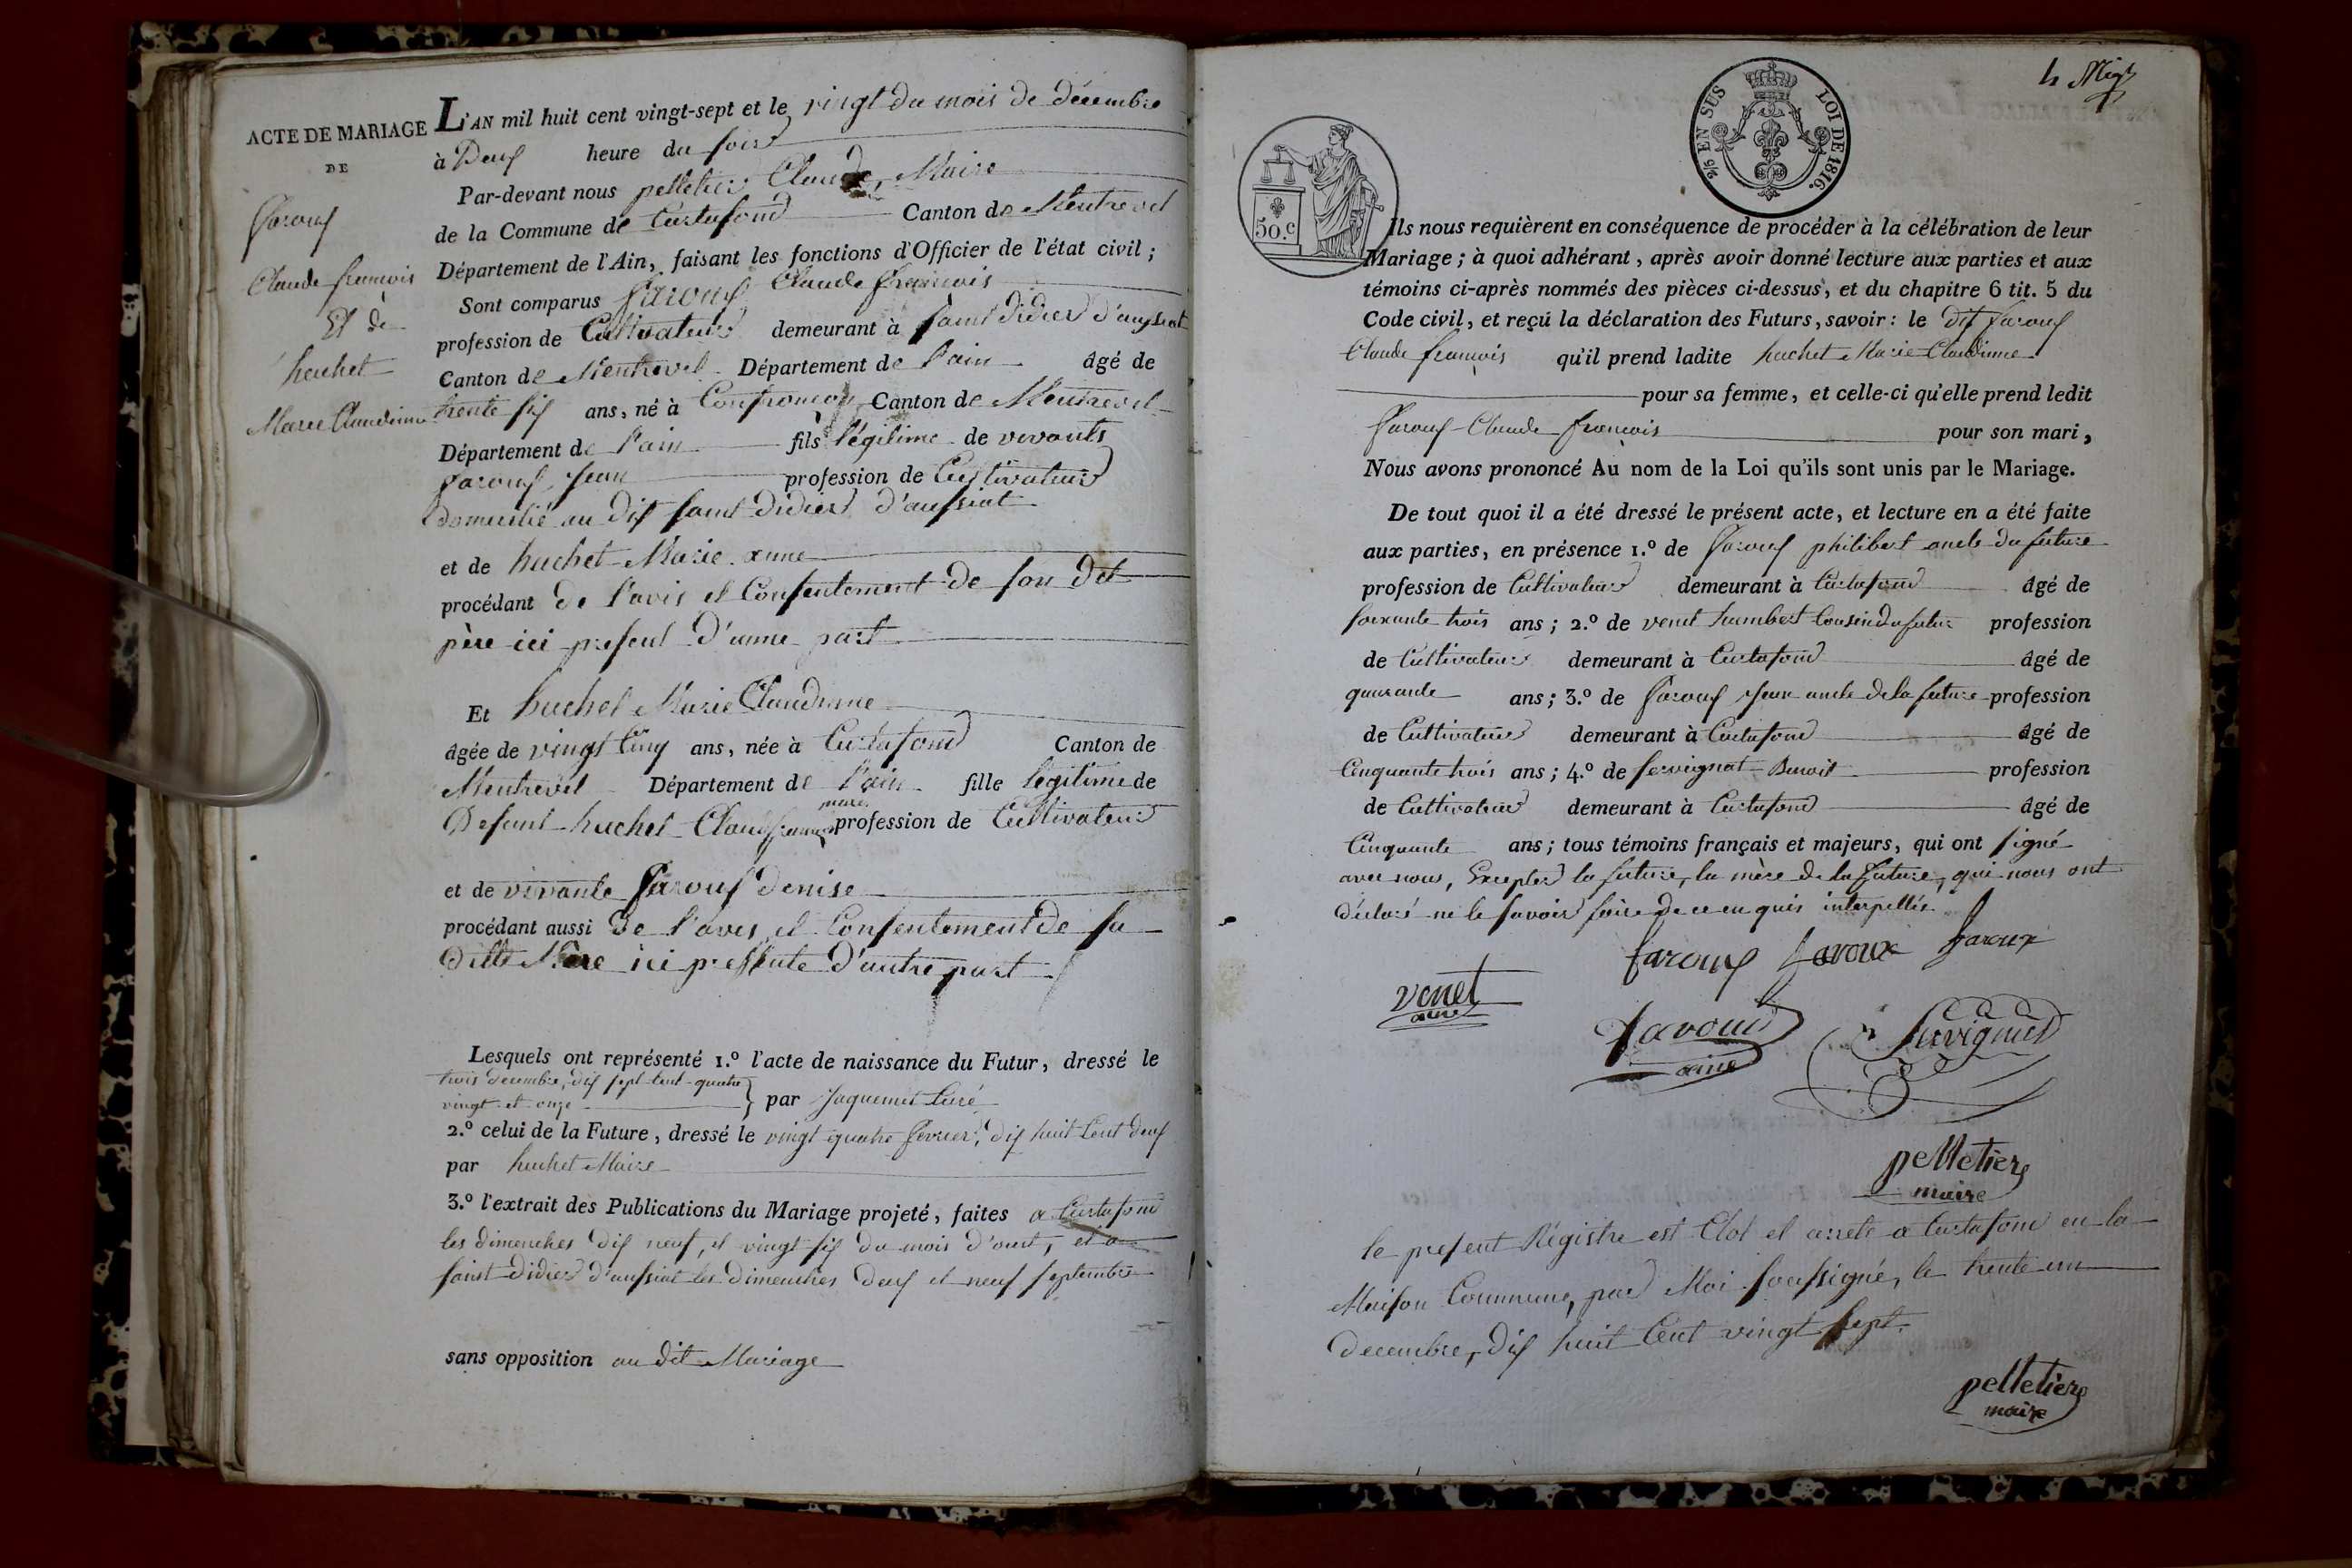 ACTE DE MARIAGE
DE
faroux
Claude françois
Et de
huchet
Marie Claudinne
L'AN mil huit cent vingt-sept et le vingt du mois de décembre
à Deux heure du soir
Par-devant nous pelletier Claude, Maire
de la Commune de Curtafond Canton de Montrevel
Département de l'Ain, faisant les fonctions d'Officier de l'état civil ;
Sont comparus faroux Claude françois
profession de Cultivateur demeurant à saint didier d'aussiat
Canton de Montrevel Département de l'ain âgé de
trente six ans, né à Confrançon Canton de Montrevel
Département de l'ain fils légitime de vivants
faroux Jean profession de Cultivateur
Domicilié au dit saint Didier d'aussiat
et de huchet Marie anne
procédant de l'avis et Consentement de son dit
père ici present D'unne part
Et huchet Marie Claudinne
âgée de vingt Cinq ans, née à Curtafond Canton de
Montrevel Département de l'ain fille légitime de
Defunt huchet Claude françois maire profession de Cultivateur
et de vivante faroux denise
procédant aussi De l'avis et Consentement de sa
ditte Mère ici presente d'autre part
Lesquels ont représenté 1.º l'acte de naissance du Futur, dressé le
trois decembre, dix sept cent quatre
vingt et onze } par Jaquemet Curé
2.º celui de la Future, dressé le vingt quatre fevrier, dix huit Cent deux
par huchet Maire
3.º l'extrait des Publications du Mariage projeté, faites a Curtafond
les dimenches dix neuf, et vingt six du mois d'out, et a
saint Didier d'aussiat les Dimenches deux et neuf septembre
sans opposition au dit Mariage
50.c
2/5 EN SUS LOI DE 1816.
Ils nous requièrent en conséquence de procéder à la célébration de leur
Mariage ; à quoi adhérant, après avoir donné lecture aux parties et aux
témoins ci-après nommés des pièces ci-dessus, et du chapitre 6 tit. 5 du
Code civil, et reçu la déclaration des Futurs, savoir : le dit faroux
Claude françois qu'il prend ladite huchet Marie Claudinne
pour sa femme, et celle-ci qu'elle prend ledit
faroux Claude françois pour son mari,
Nous avons prononcé Au nom de la Loi qu'ils sont unis par le Mariage.
De tout quoi il a été dressé le présent acte, et lecture en a été faite
aux parties, en présence 1.º de faroux philibert oncle du future
profession de Cultivateur demeurant à Curtafond âgé de
soixante trois ans ; 2.º de venet humbert Cousin du futur profession
de Cultivateur demeurant à Curtafond âgé de
quarante ans ; 3.º de faroux Jean oncle de la future profession
de Cultivateur demeurant à Curtafond âgé de
Cinquante trois ans ; 4.º de servignat Benoit profession
de Cultivateur demeurant à Curtafond âgé de
Cinquante ans ; tous témoins français et majeurs, qui ont signé
avec nous, Excepter la future, la mère de la future, qui nous ont
déclaré ne le savoir faire de ce en quis interpellés
faroux faroux faroux
venet
ainé
faroux
ainé
Servignat
pelletier
maire
le present Régistre est Clot et arreté a Curtafond en la
Maison Commune, par Moi soussigné, le trente un
decembre, Dix huit Cent vingt sept.
pelletier
maire